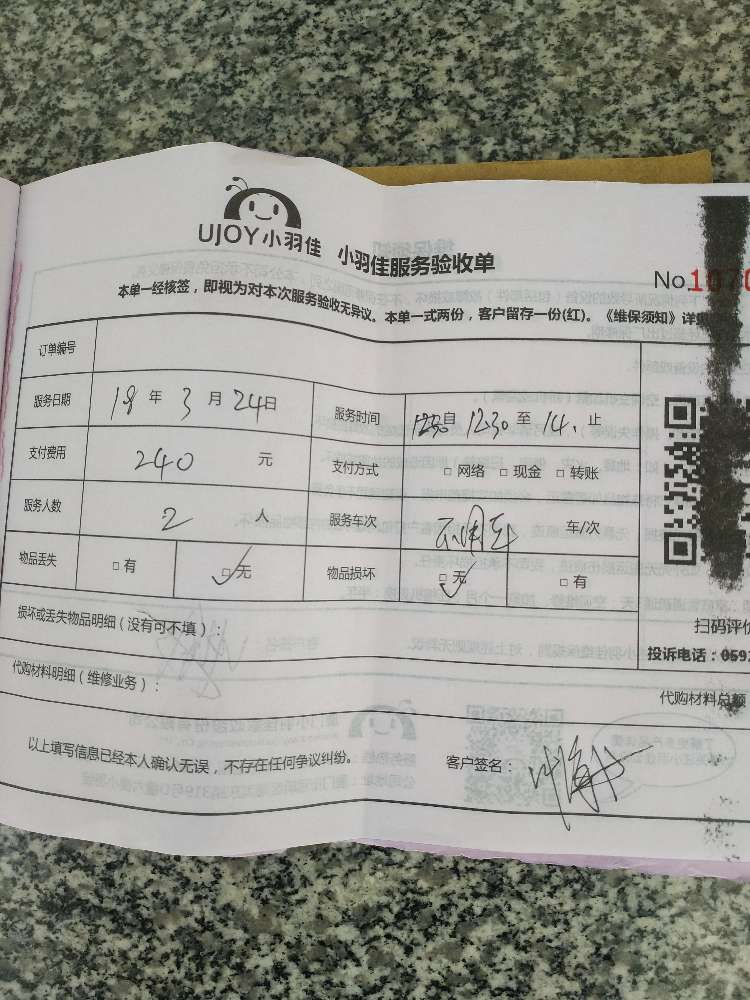 UJOY小羽佳 小羽佳服务验收单
No.1070
本单一经核签，即视为对本次服务验收无异议。本单一式两份，客户留存一份(红)。《维保须知》详
订单编号
服务日期 18 年 3 月 24 日 服务时间 1230 自 1230 至 14. 止
支付费用 240 元 支付方式 □ 网络 □ 现金 □ 转账
服务人数 2 人 服务车次 不用车 车/次
物品丢失 □ 有 □ 无 物品损坏 □ 无 □ 有
损坏或丢失物品明细（没有可不填）：
扫码评价
投诉电话：0592
代购材料明细（维修业务）：
代购材料总额
以上填写信息已经本人确认无误，不存在任何争议纠纷。 客户签名：